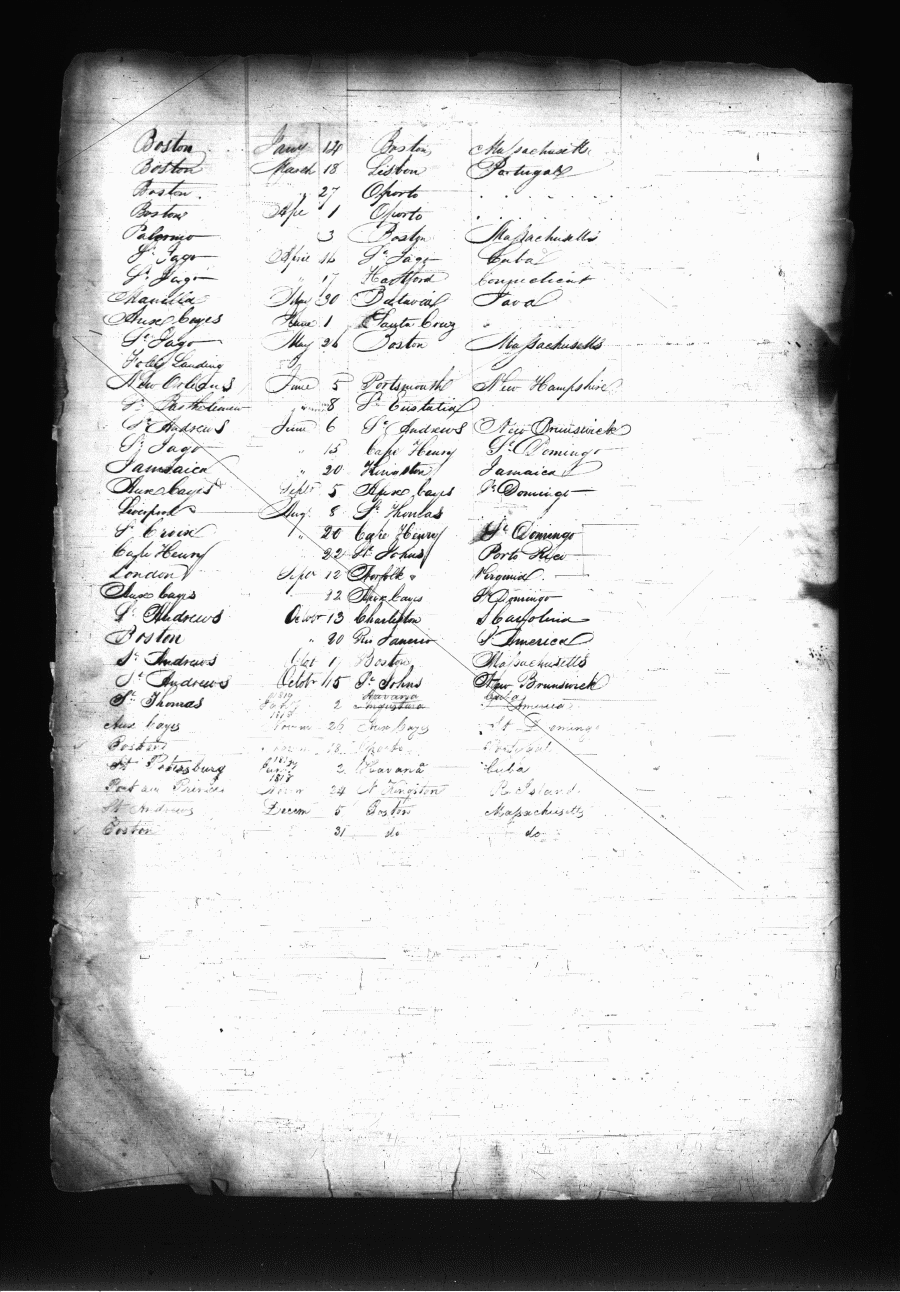 Boston Jany 14 Boston Massachusetts
Boston March 18 Lisbon Portugal
Boston " 27 Oporto " "
Boston Apl 1 Oporto " "
Palermo 3 Boston Massachusetts
St Jago April 16 St Jago Cuba
St Jago " 17 Hartford Connecticut
Manilla 30 Batavia Java
Aux Cayes June 1 Santa Cruz "
St Jago May 26 Boston Massachusetts
Landing
New Orleans June 5 Portsmouth New Hampshire
St Bartholomew " 8 St Eustatia
St Andrews June 6 St Andrews New Brunswick
St Jago " 15 Cape Henry St Domingo
Jamaica " 20 Kingston Jamaica
Aux Cayes Septr 5 Aux Cayes St Domingo
Liverpool Augt 8 St Thomas
St Croix " 20 Cape Henry St Domingo
Cape Henry 22 St Johns Porto Rico
London Sepr 12 Norfolk Virginia
Aux Cayes 12 Aux Cayes St Domingo
St Andrews Octobr 13 Charleston S Carolina
Boston " 20 Rio Janeiro S America
St Andrews Octo 1 Boston Massachusetts
St Andrews Octobr 15 St Johns New Brunswick
1819 Havana Cuba
St Thomas 2 Angustura America
1818
Aux Cayes Novem 26 Aux Cayes St Domingo
Boston 18 Portugal
1819
St Petersburg 2 Havana Cuba
1818
Port au Prince Novem 24 N Kingston R Island
St Andrews Decem 5 Boston Massachusetts
Boston 31 do do